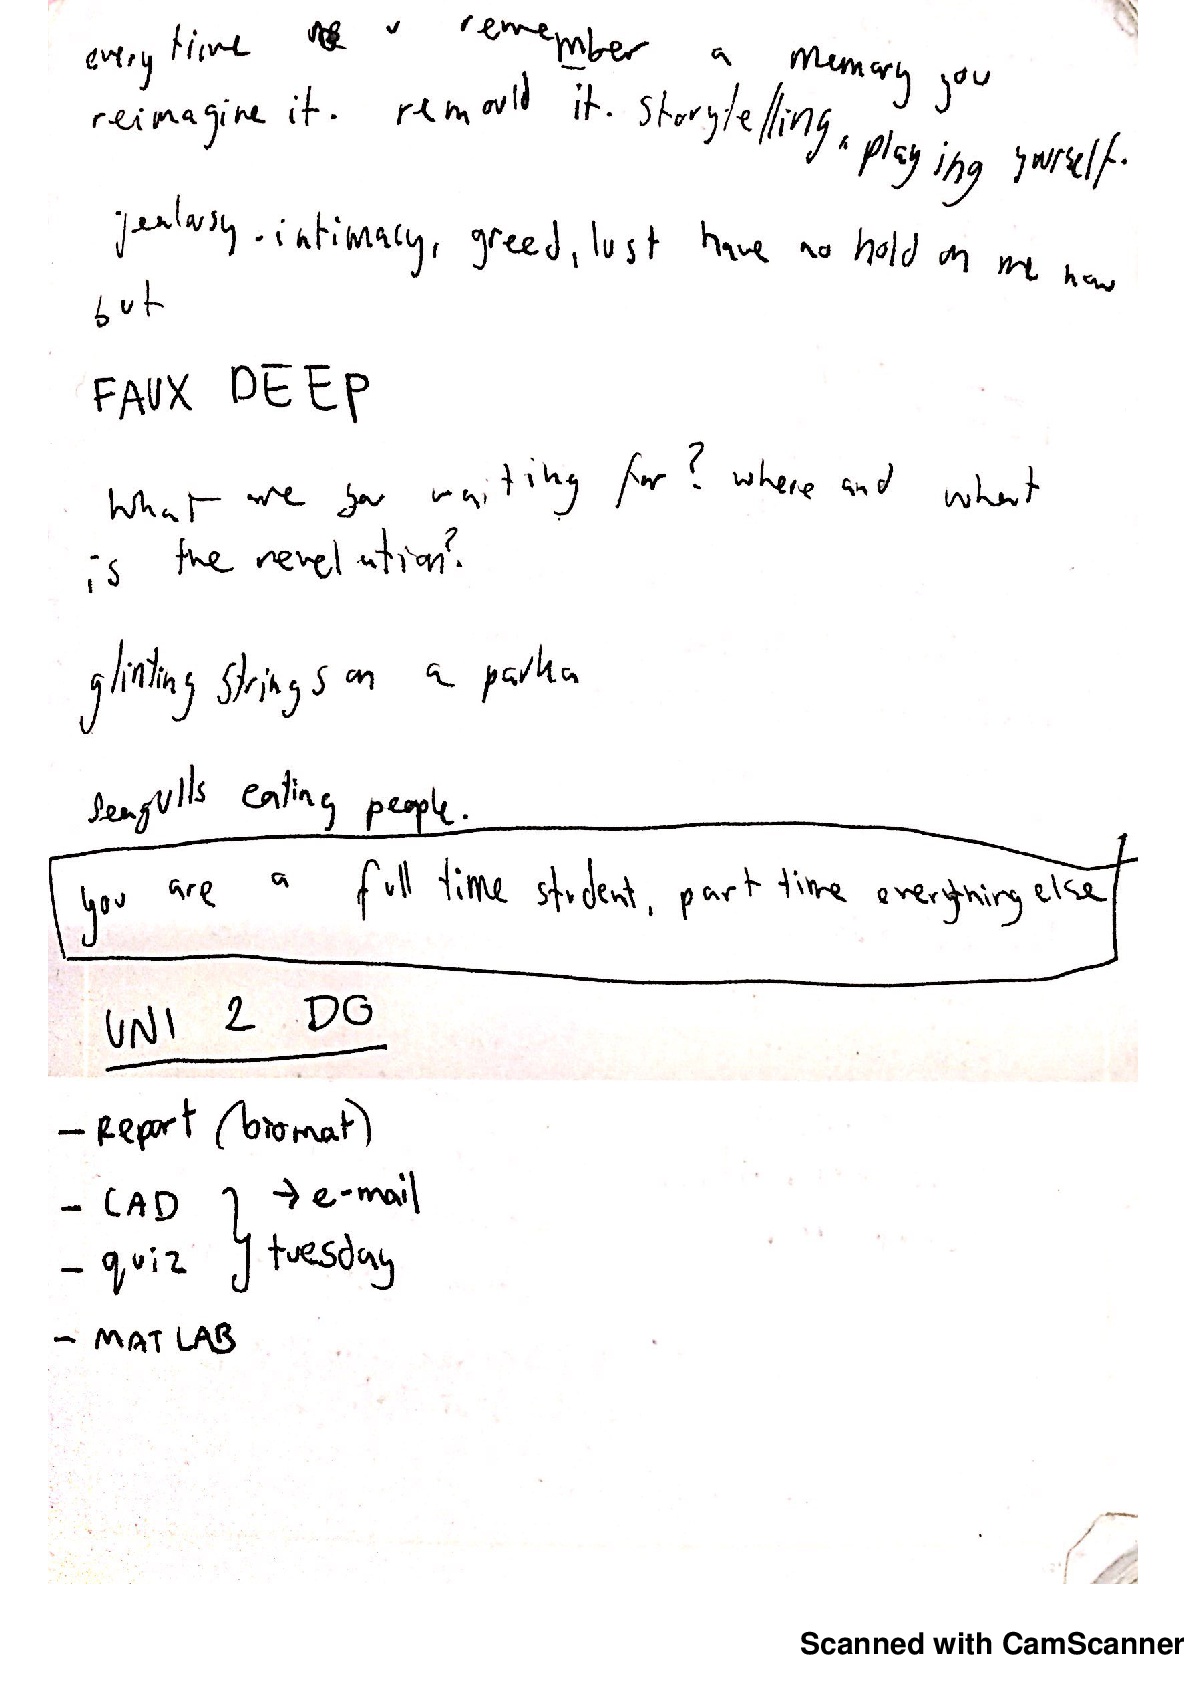 every time u remember a memory you
reimagine it. remould it. storytelling, playing yourself.
jealousy. intimacy, greed, lust have no hold on me now
but
FAUX DEEP
What are you waiting for? where and what
is the revelation?
glinting strings on a parka
seagulls eating people.
you are a full time student, part time everything else
UNI 2 DO
- Report (biomat)
- CAD } → e-mail
- quiz } tuesday
- MATLAB
Scanned with CamScanner